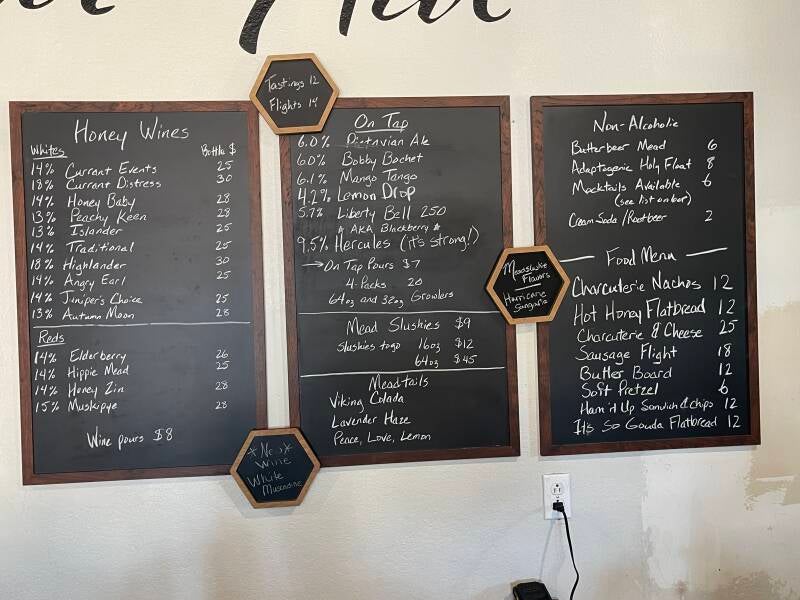 Tastings 12
Flights 14
Honey Wines
Whites Bottle $
14% Currant Events 25
18% Currant Distress 30
14% Honey Baby 28
13% Peachy Keen 28
13% Islander 25
14% Traditional 25
18% Highlander 30
14% Angry Earl 25
14% Juniper's Choice 25
13% Autumn Moon 28
Reds
14% Elderberry 26
14% Hippie Mead 25
14% Honey Zin 28
15% Muskipye 28
Wine pours $8
*New*
Wine
White
Muscadine
On Tap
6.0% Pietavian Ale
6.0% Bobby Bochet
6.1% Mango Tango
4.2% Lemon Drop
5.7% Liberty Bell 250
* AKA Blackberry *
9.5% Hercules (it's strong!)
→ On Tap Pours $7
4-Packs 20
64oz and 32oz Growlers
Mead Slushies $9
Slushies to go 16oz $12
64oz $45
Meadtails
Viking Colada
Lavender Haze
Peace, Love, Lemon
Meadslushie
Flavors
Hurricane
Sangria
Non-Alcoholic
Butterbeer Mead 6
Adaptogenic Holy Float 8
Mocktails Available 6
(see list on bar)
Cream Soda / Rootbeer 2
Food Menu
Charcuterie Nachos 12
Hot Honey Flatbread 12
Charcuterie & Cheese 25
Sausage Flight 18
Butter Board 12
Soft Pretzel 6
Ham'd Up Sandwich & chips 12
It's So Gouda Flatbread 12